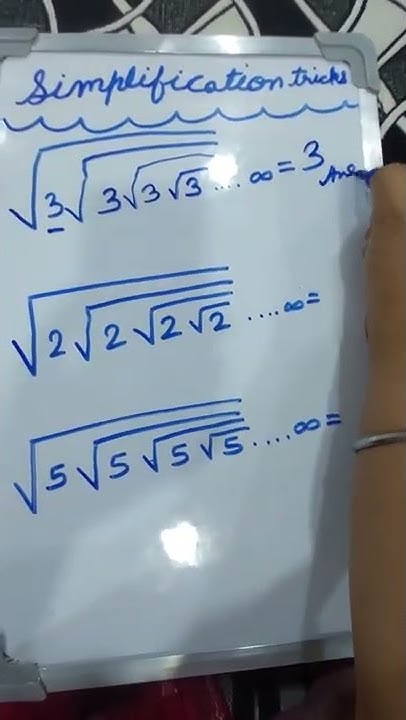 Simplification tricks
√3√3√3√3 .... ∞ = 3
√2√2√2√2 .... ∞ =
√5√5√5√5 .... ∞ =